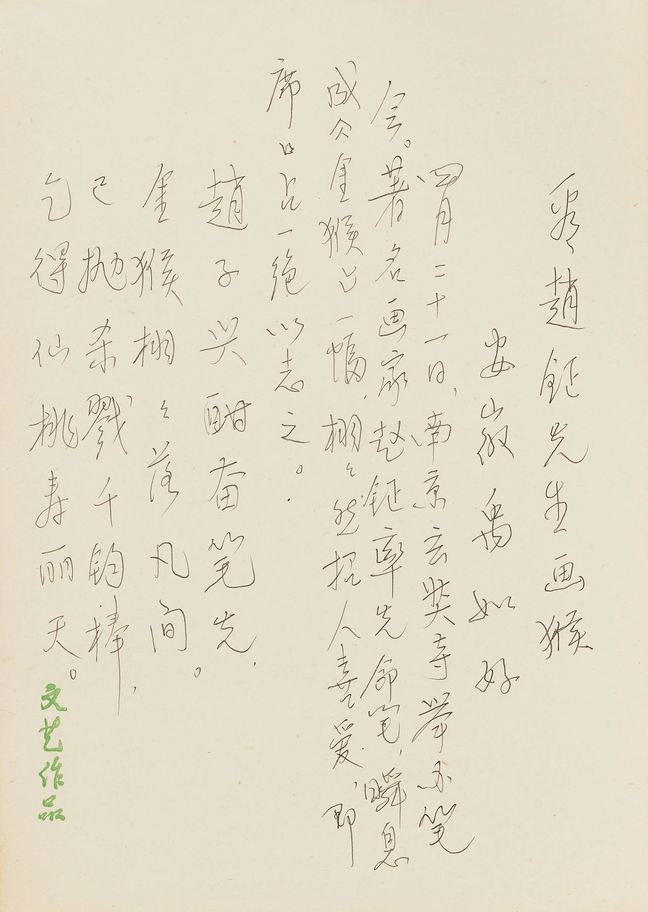 看赵钲先生画猴
安徽 禹如好
四月二十一日，南京玄奘寺举办笔
会。著名画家赵钲率先命笔，瞬息
成今金猴已一幅，栩々然招人喜爱，即
席口占一绝以志之。
趙子兴酣奋笔先，
金猴栩々落凡间。
已抛杀戮千钧棒，
乞得仙桃寿丽天。
文艺作品